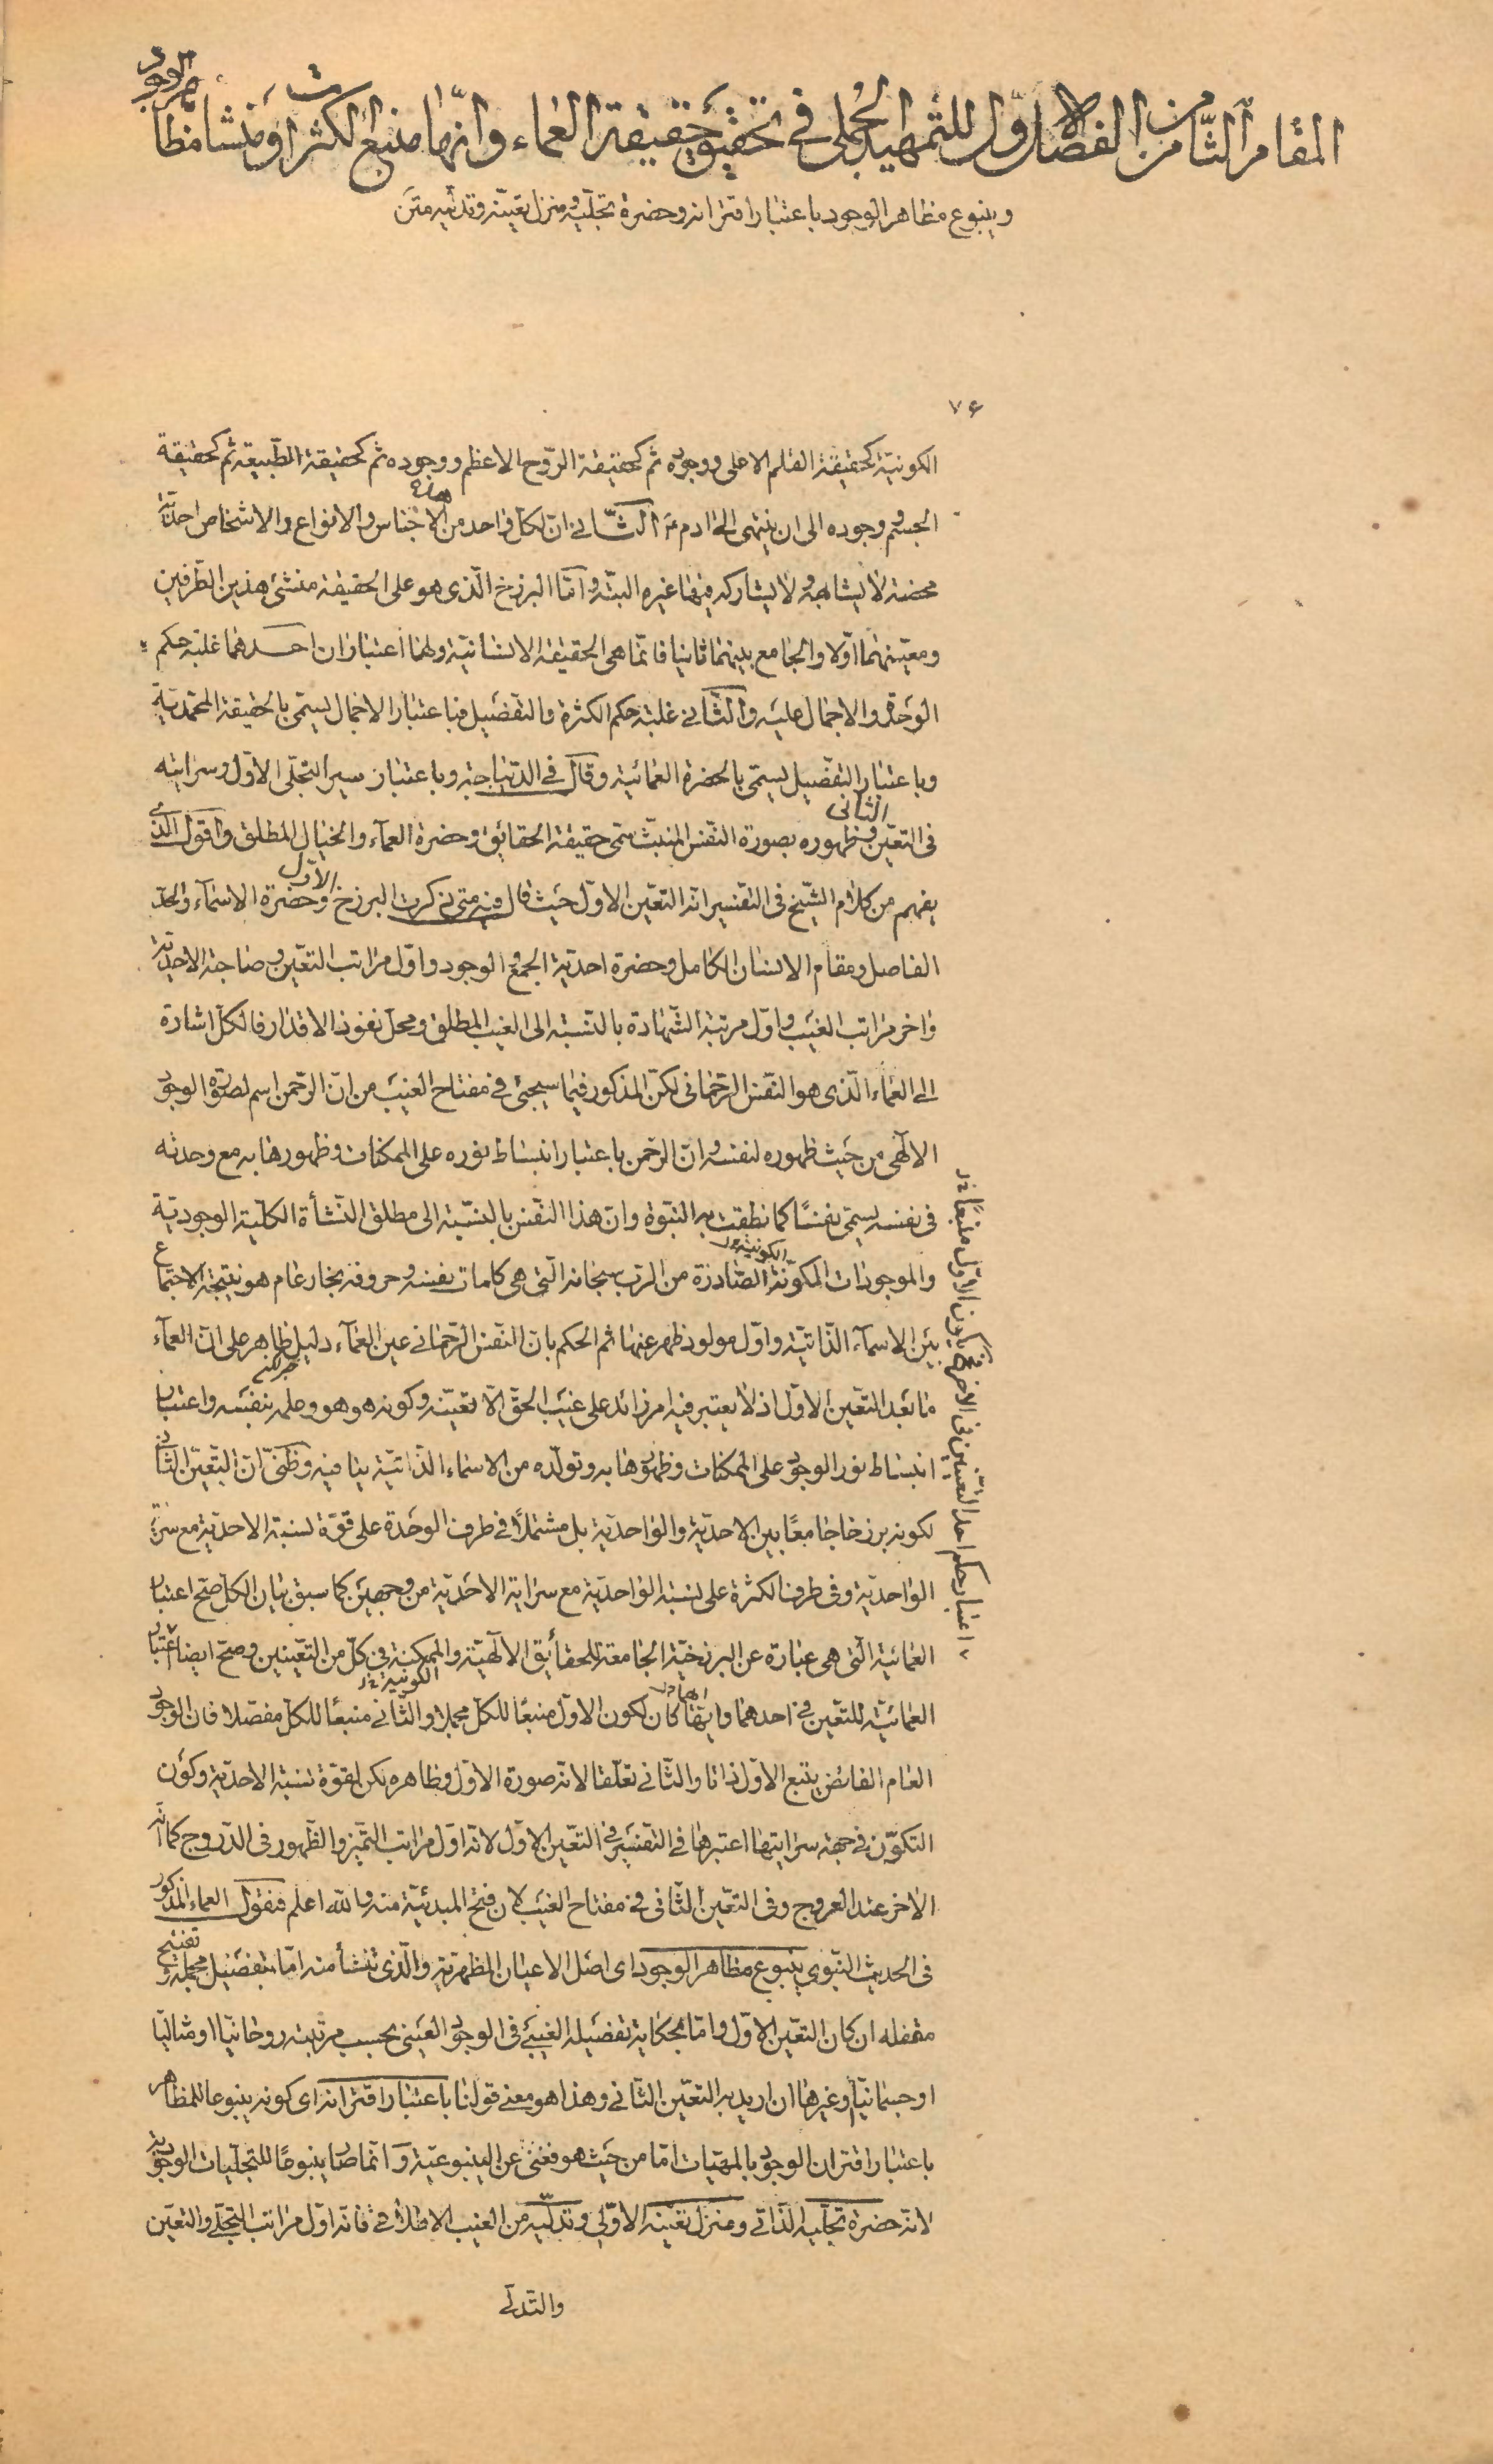 المقام الثامن من الفصل الاول للتمهيد الجملى فى تحقيق حقيقة العماء وانها منبع الكثرات ومنشأ مظاهر الوجود
وينبوع مظاهر الوجود باعتبار اقترانه وحضرة تجلّيه ومنزل تعيّنه وتدلّيه متن
٧۶
الكونيّة كحقيقة القلم الاعلى ووجوده ثم كحقيقة الرّوح الاعظم ووجوده ثم كحقيقة الطّبيعة ثم كحقيقة
الجسم ووجوده الى ان ينتهى الى ادم ع الثّانى ان لكل واحد من هذه الاجناس والانواع والاشخاص احديّة
محضة لا يشابهه ولا يشاركه فيها غيره البتّة وامّا البرزخ الّذى هو على الحقيقة منشئ هذين الطّرفين
ومعيّنهما اوّلا والجامع بينهما ثانيا فانّما هى الحقيقة الانسانيّة ولهما اعتباران احدهما غلبة حكم
الوحدة والاجمال عليه والثّانى غلبة حكم الكثرة والتفصيل فباعتبار الاجمال يسمّى بالحقيقة المحمّديّة
وباعتبار التفصيل يسمّى بالحضرة العمائية وقال فى الدّيباجة وباعتبار سير التجلّى الاوّل وسرايته
فى التعيّن الثانى وظهوره بصورة النّفس المنبثّ سمّى حقيقة الحقائق وحضرة العمآء والخيال المطلق واقول الّذى
يفهم من كلام الشّيخ فى التفسير انّه التعيّن الاوّل حيث قال فيه متى ذكرت البرزخ الاوّل وحضرة الاسمآء والحدّ
الفاصل ومقام الانسان الكامل وحضرة احديّة الجمع والوجود واوّل مراتب التعيّن وصاحبة الاحديّة
واخر مراتب الغيب واوّل مرتبة الشّهادة بالنّسبة الى الغيب المطلق ومحلّ نفوذ الاقتدار فالكلّ اشارة
الى العماء الّذى هو النّفس الرّحمانى لكنّ المذكور فيما سيجئ فى مفتاح الغيب من انّ الرّحمن اسم لصورة الوجود
الالٰهى من حيث ظهوره لنفسه وان الرّحمن باعتبار انبساط نوره على الممكنات وظهورها به مع وحدته
فى نفسه يسمّى نفسًا كما نطقت به النّبوة وان هذا النّفس بالنسبة الى مطلق النّشأة الكلّية الوجوديّة
والموجودات المكوّنة الكونيّة الصّادرة من الرّب سبحانه الّتى هى كلمات نفسه وحروفه بخار عام هو نتيجة الاجتماع
بين الاسمآء الذّاتيّة واوّل مولود ظهر عنها ثم الحكم بان النّفس الرّحمانى عين العمآء دليل ظاهر على انّ العمآء
ما بعد التعيّن الاوّل اذ لا يعتبر فيه امر زائد على غيب الحقّ الّا تعيّنه وكونه هو هو وعلمه بنفسه واعتبار
انبساط نور الوجود على الممكنات وظهورها به وتولّده من الاسماء الذّاتيّة ينافيه وظنّى انّ التعيّن الثّانى
لكونه برزخا جامعًا بين الاحديّة والواحديّة بل مشتملًا فى طرف الوحدة على قوّة نسبة الاحديّة مع سراية
الواحديّة وفى طرف الكثرة على نسبة الواحديّة مع سراية الاحديّة من وجهين كما سبق بيان الكل صحّ اعتبار
العمائية الّتى هى عبارة عن البرزخيّة الجامعة للحقائق الالٰهيّة والممكنة الكونيّة فى كلّ من التعيّنين وصحّ ايضا اعتبار
العمائيّة للتعيّن فى احدهما وايّهما كان لكون الاوّل منبعًا للكل مجملا والثّانى منبعًا للكل مفصّلا فان الوجود
العام الفائض يتبع الاوّل ذاتا والثّانى تعلّقا لانّه صورة الاوّل وظاهره لكن لقوّة نسبة الاحديّة وكون
التكوّن فى جهة سرايتها اعتبرها فى التفسير فى التعيّن الاوّل لانّه اوّل مراتب التميّز والظّهور فى الدّروج كما انّه
الاخر عند العروج وفى التعيّن الثّانى فى مفتاح الغيب لان فتح المبدئيّة منه والله اعلم فنقول العماء المذكور
فى الحديث النّبوى ينبوع مظاهر الوجود اى اصل الاعيان المظهريّة والّذى تنشأ منه امّا بتفصيل مجمله وتفتيح
مقفله ان كان التعيّن الاوّل وامّا بحكاية تفصيله الغيبىّ فى الوجود العينى بحسب مرتبته روحانيّا او مثاليّا
او جسمانيّا وغيرها ان اريد به التعيّن الثّانى وهذا هو معنى قولنا باعتبار اقترانه اى كونه ينبوعا للمظاهر
باعتبار اقتران الوجود بالمهيّات امّا من حيث هو فغنى عن الينبوعيّة وانّما صار ينبوعًا للتجلّيات الوجوديّة
لانّه حضرة تجلّيه الذّاتى ومنزل تعيّنه الاوّلى وتدلّيه من الغيب الاطلاقى فانّه اوّل مراتب التجلّى والتعيّن
والتدلّى
اعتبار حكم احد التعيّنين فى الاخر يكون الاوّل منبعًا